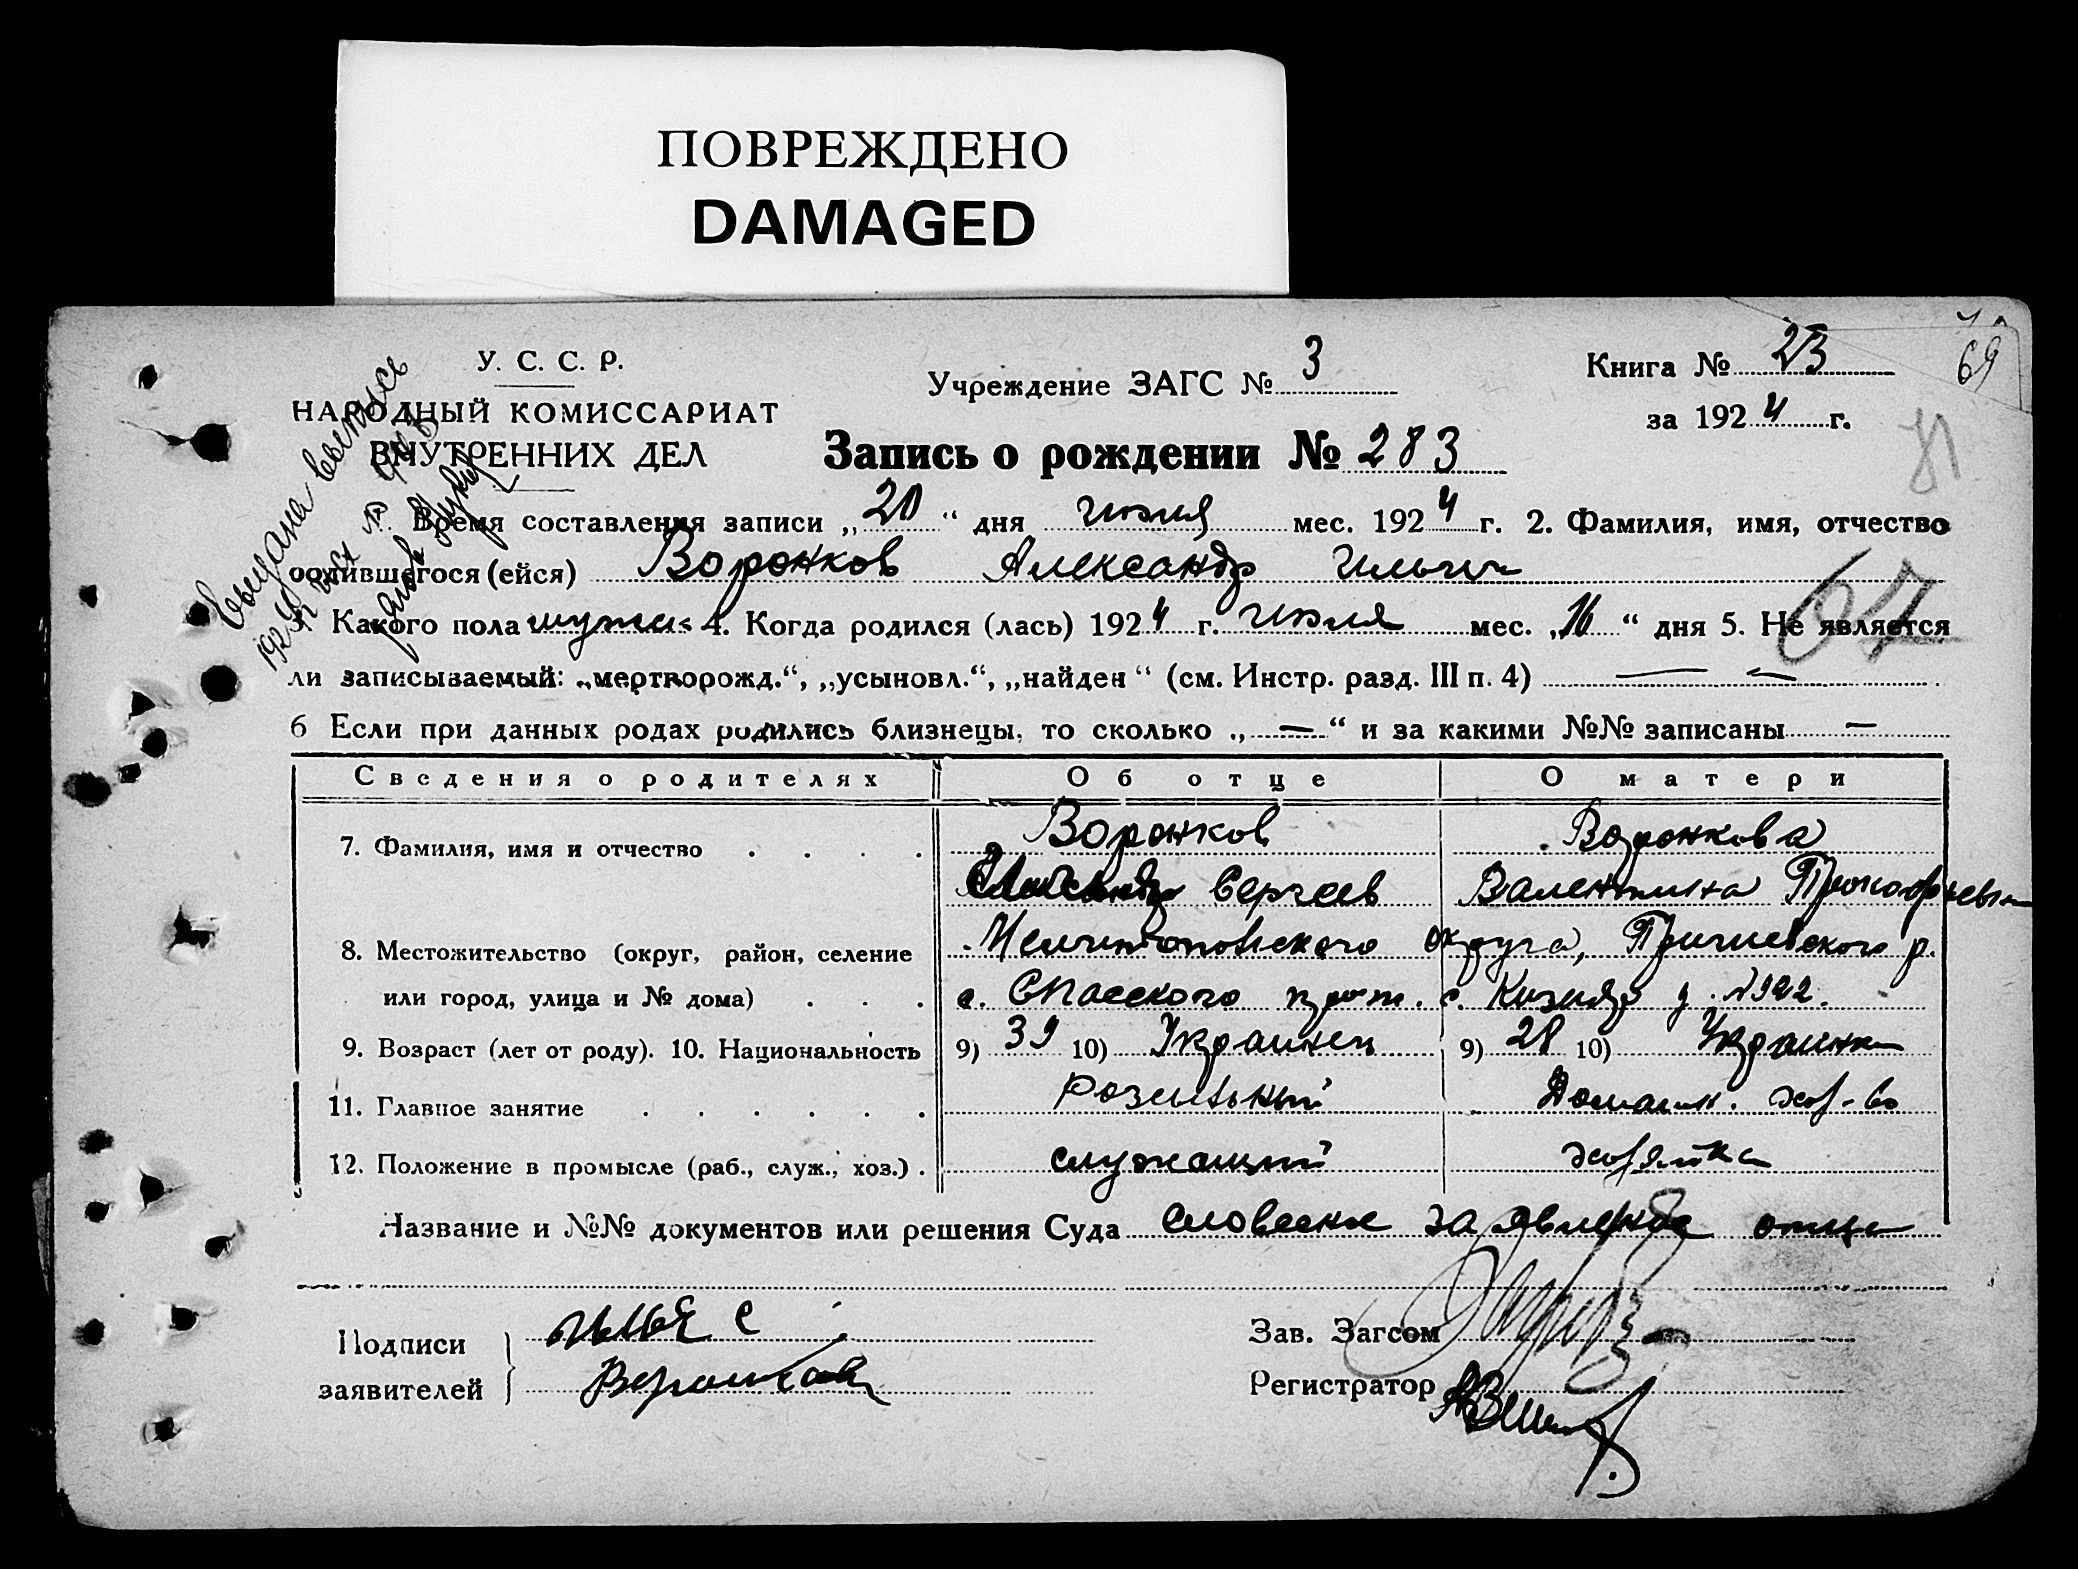 ПОВРЕЖДЕНО
DAMAGED
У. С. С. Р.
НАРОДНЫЙ КОМИССАРИАТ
ВНУТРЕННИХ ДЕЛ
Учреждение ЗАГС № 3
Книга № 23
69
за 1924 г.
81
Запись о рождении № 283
Выдана выпись
Время составления записи „20“ дня июля мес. 1924 г. 2. Фамилия, имя, отчество
родившегося (ейся) Воронков Александр Ильич
67
Какого пола мужск 4. Когда родился (лась) 1924 г. июля мес. „16“ дня 5. Не является
ли записываемый: „мертворожд.“, „усыновл.“, „найден“ (см. Инстр. разд. III п. 4) — —
6 Если при данных родах родились близнецы, то сколько „—“ и за какими №№ записаны —
Сведения о родителях Об отце О матери
7. Фамилия, имя и отчество . . . . Воронков Воронкова
Сергеев Валентина Прокофьевн
8. Местожительство (округ, район, селение Мелитопольского округа, р.
или город, улица и № дома) . . . с. Спасского д. №
9. Возраст (лет от роду). 10. Национальность 9) 39 10) Украинец 9) 28 10) Украинка
11. Главное занятие . . . . . . Домашн. хоз-во
12. Положение в промысле (раб., служ., хоз.) . служащий хозяйка
Название и №№ документов или решения Суда словесное заявление отца
Подписи
заявителей
Илья С
Воронков
Зав. Загсом
Регистратор